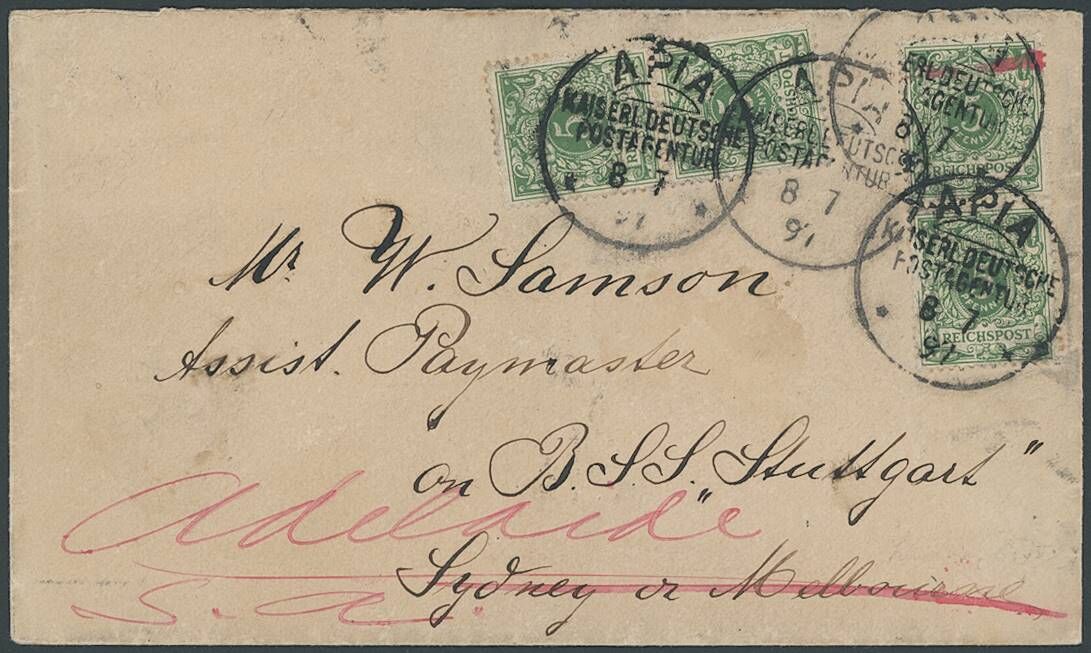 APIA
KAISERL. DEUTSCHE
POSTAGENTUR
* 8 7 *
97
APIA
KAISERL. DEUTSCHE
POSTAGENTUR
8 7
97
KAISERL. DEUTSCHE
POSTAGENTUR
* 8 7
APIA
KAISERL. DEUTSCHE
POSTAGENTUR
* 8 7 *
97
5
REICHSPOST
REICHSPOST
REICHSPOST
Mr W. Samson
Assist. Paymaster
on B.S.S. Stuttgart"
Adelaide
Sydney or Melbourne
S. A.